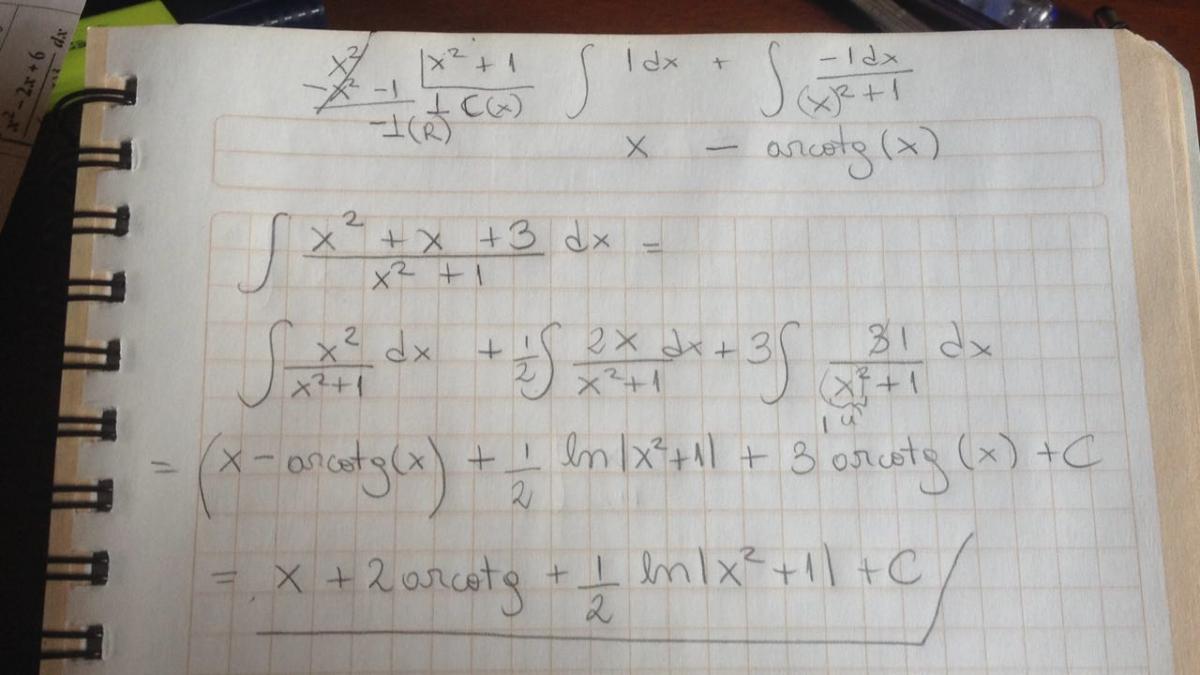 x² - 2x + 6 dx
x² |x² + 1 ∫ 1dx + ∫ -1dx/((x)² + 1)
-x² -1 1 C(x)
-1(R) x - arcotg(x)
∫ (x² + x + 3)/(x² + 1) dx =
∫ x²/(x²+1) dx + 1/2 ∫ 2x/(x²+1) dx + 3∫ 1/((x)²+1) dx
u
= (x - arcotg(x)) + 1/2 ln|x²+1| + 3 arcotg (x) + C
= x + 2 arcotg + 1/2 ln|x² + 1| + C